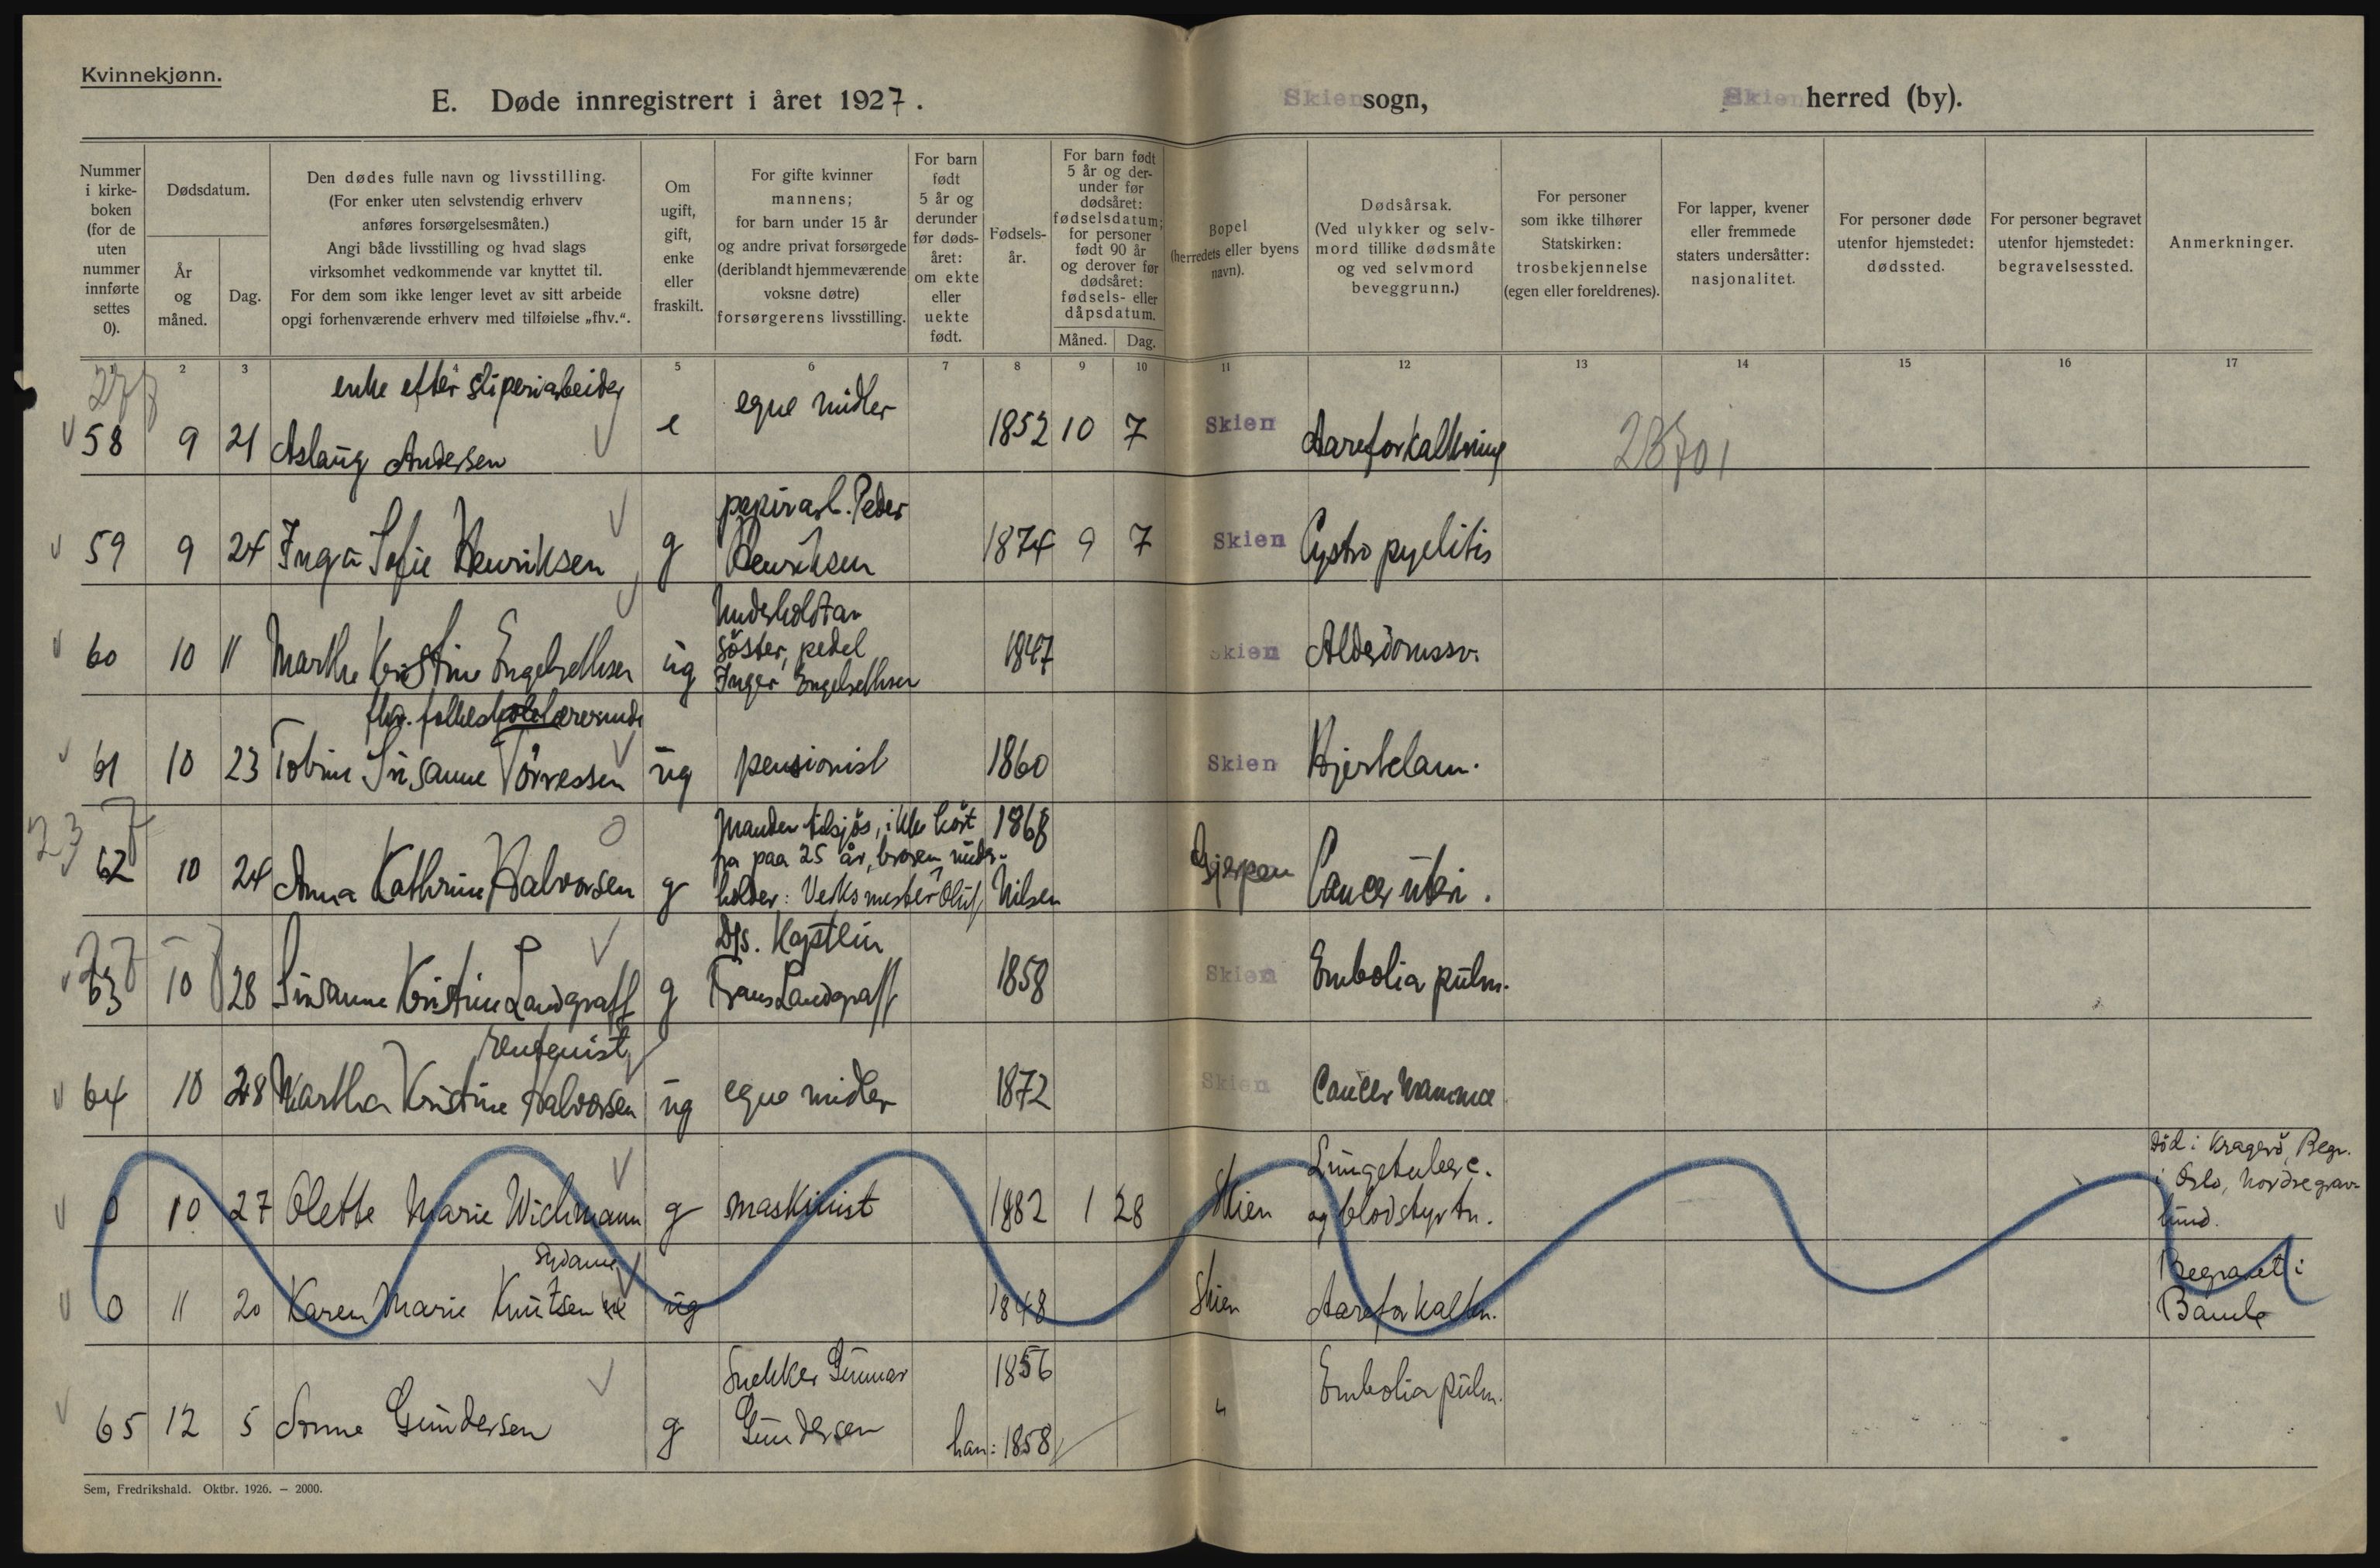 Kvinnekjønn.
E. Døde innregistrert i året 1927.
Skien sogn,
Skien herred (by).
Nummer i kirke-boken (for de uten nummer innførte settes 0).
Dødsdatum.
År og måned.
Dag.
Den dødes fulle navn og livsstilling.
(For enker uten selvstendig erhverv anføres forsørgelsesmåten.)
Angi både livsstilling og hvad slags virksomhet vedkommende var knyttet til.
For dem som ikke lenger levet av sitt arbeide opgi forhenværende erhverv med tilføielse „fhv.“.
Om ugift, gift, enke eller fraskilt.
For gifte kvinner mannens; for barn under 15 år og andre privat forsørgede (deriblandt hjemmeværende voksne døtre) forsørgerens livsstilling.
For barn født 5 år og derunder før døds-året: om ekte eller uekte født.
Fødsels-år.
For barn født 5 år og der-under før dødsåret: fødselsdatum; for personer født 90 år og derover før dødsåret: fødsels- eller dåpsdatum.
Måned. Dag.
Bopel (herredets eller byens navn).
Dødsårsak.
(Ved ulykker og selv-mord tillike dødsmåte og ved selvmord beveggrunn.)
For personer som ikke tilhører Statskirken: trosbekjennelse (egen eller foreldrenes).
For lapper, kvener eller fremmede staters undersåtter: nasjonalitet.
For personer døde utenfor hjemstedet: dødssted.
For personer begravet utenfor hjemstedet: begravelsessted.
Anmerkninger.
1 2 3 4 5 6 7 8 9 10 11 12 13 14 15 16 17
enke efter sliperiarbeider
58 9 21 Aslaug Andersen e egne midler 1852 10 7 Skien Aareforkalkning
papirarb. Peder
59 9 24 Inga Sofie Henriksen g Henriksen 1874 9 7 Skien Cysto pyelitis
Underholdt av
søster, pedel
60 10 11 Marthe Kristine Engelsethsen ug Inger Engelsethsen 1847 Skien Alderdomssv.
fhv. folkeskolelærerinde
61 10 23 Tobine Susanne Tørressen ug pensionist 1860 Skien Hjertelam.
Manden tilsjøs, ikke hørt 1868
fra paa 25 år, broren under-
62 10 24 Anna Kathrine Halvorsen g holder: Verksmester Oluf Nilsen Gjerpen Cancer uteri.
Dps. Kaptein
63 10 28 Susanne Kristine Landgraff g Frans Landgraff 1858 Skien Embolia pulm.
rentenist
64 10 28 Martha Kristine Halvorsen ug egne midler 1872 Skien Cancer mamma
0 10 27 Olette Marie Wichmann g maskinist 1882 1 28 Skien Lungetuberc.
og blodstyrtn.
Død i Kragerø, Begr.
i Oslo, Nordre grav-
lund.
sydame
0 11 20 Karen Marie Knutsen ug 1848 Skien Aareforkalkn.
Begravet i
Bamle
Snekker Gunnar 1856
65 12 5 Anne Gundersen g Gundersen han: 1858 " Embolia pulm.
Sem, Fredrikshald. Oktbr. 1926. — 2000.